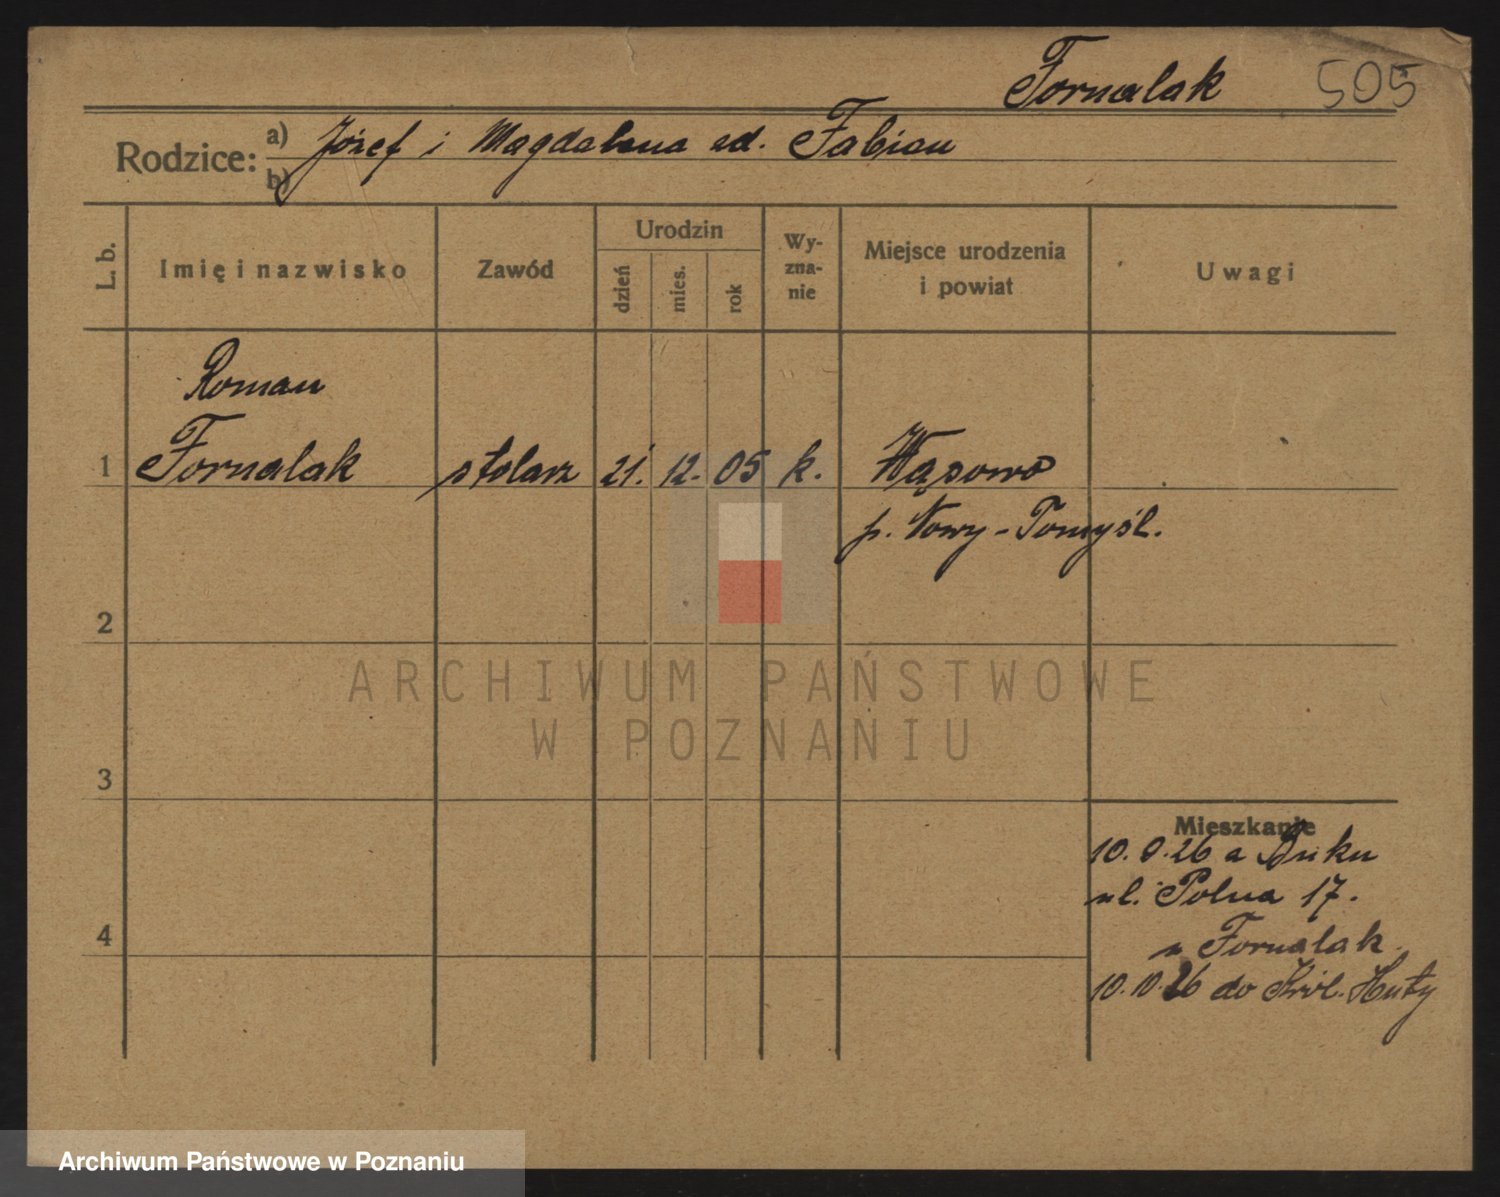 Fornalak 505
Rodzice: a) Józef i Magdalena ad. Fabian
b)
L. b. Imię i nazwisko Zawód Urodzin dzień mies. rok Wy-zna-nie Miejsce urodzenia i powiat Uwagi
Roman
1 Fornalak stolarz 21. 12. 05 k. Wąsowo
p. Nowy-Tomyśl.
2
ARCHIWUM PAŃSTWOWE
W POZNANIU
3
Mieszkanie
10. 9. 26 a Buku
ul. Polna 17.
4
u Fornalak
10.10.26 do Król. Huty
Archiwum Państwowe w Poznaniu